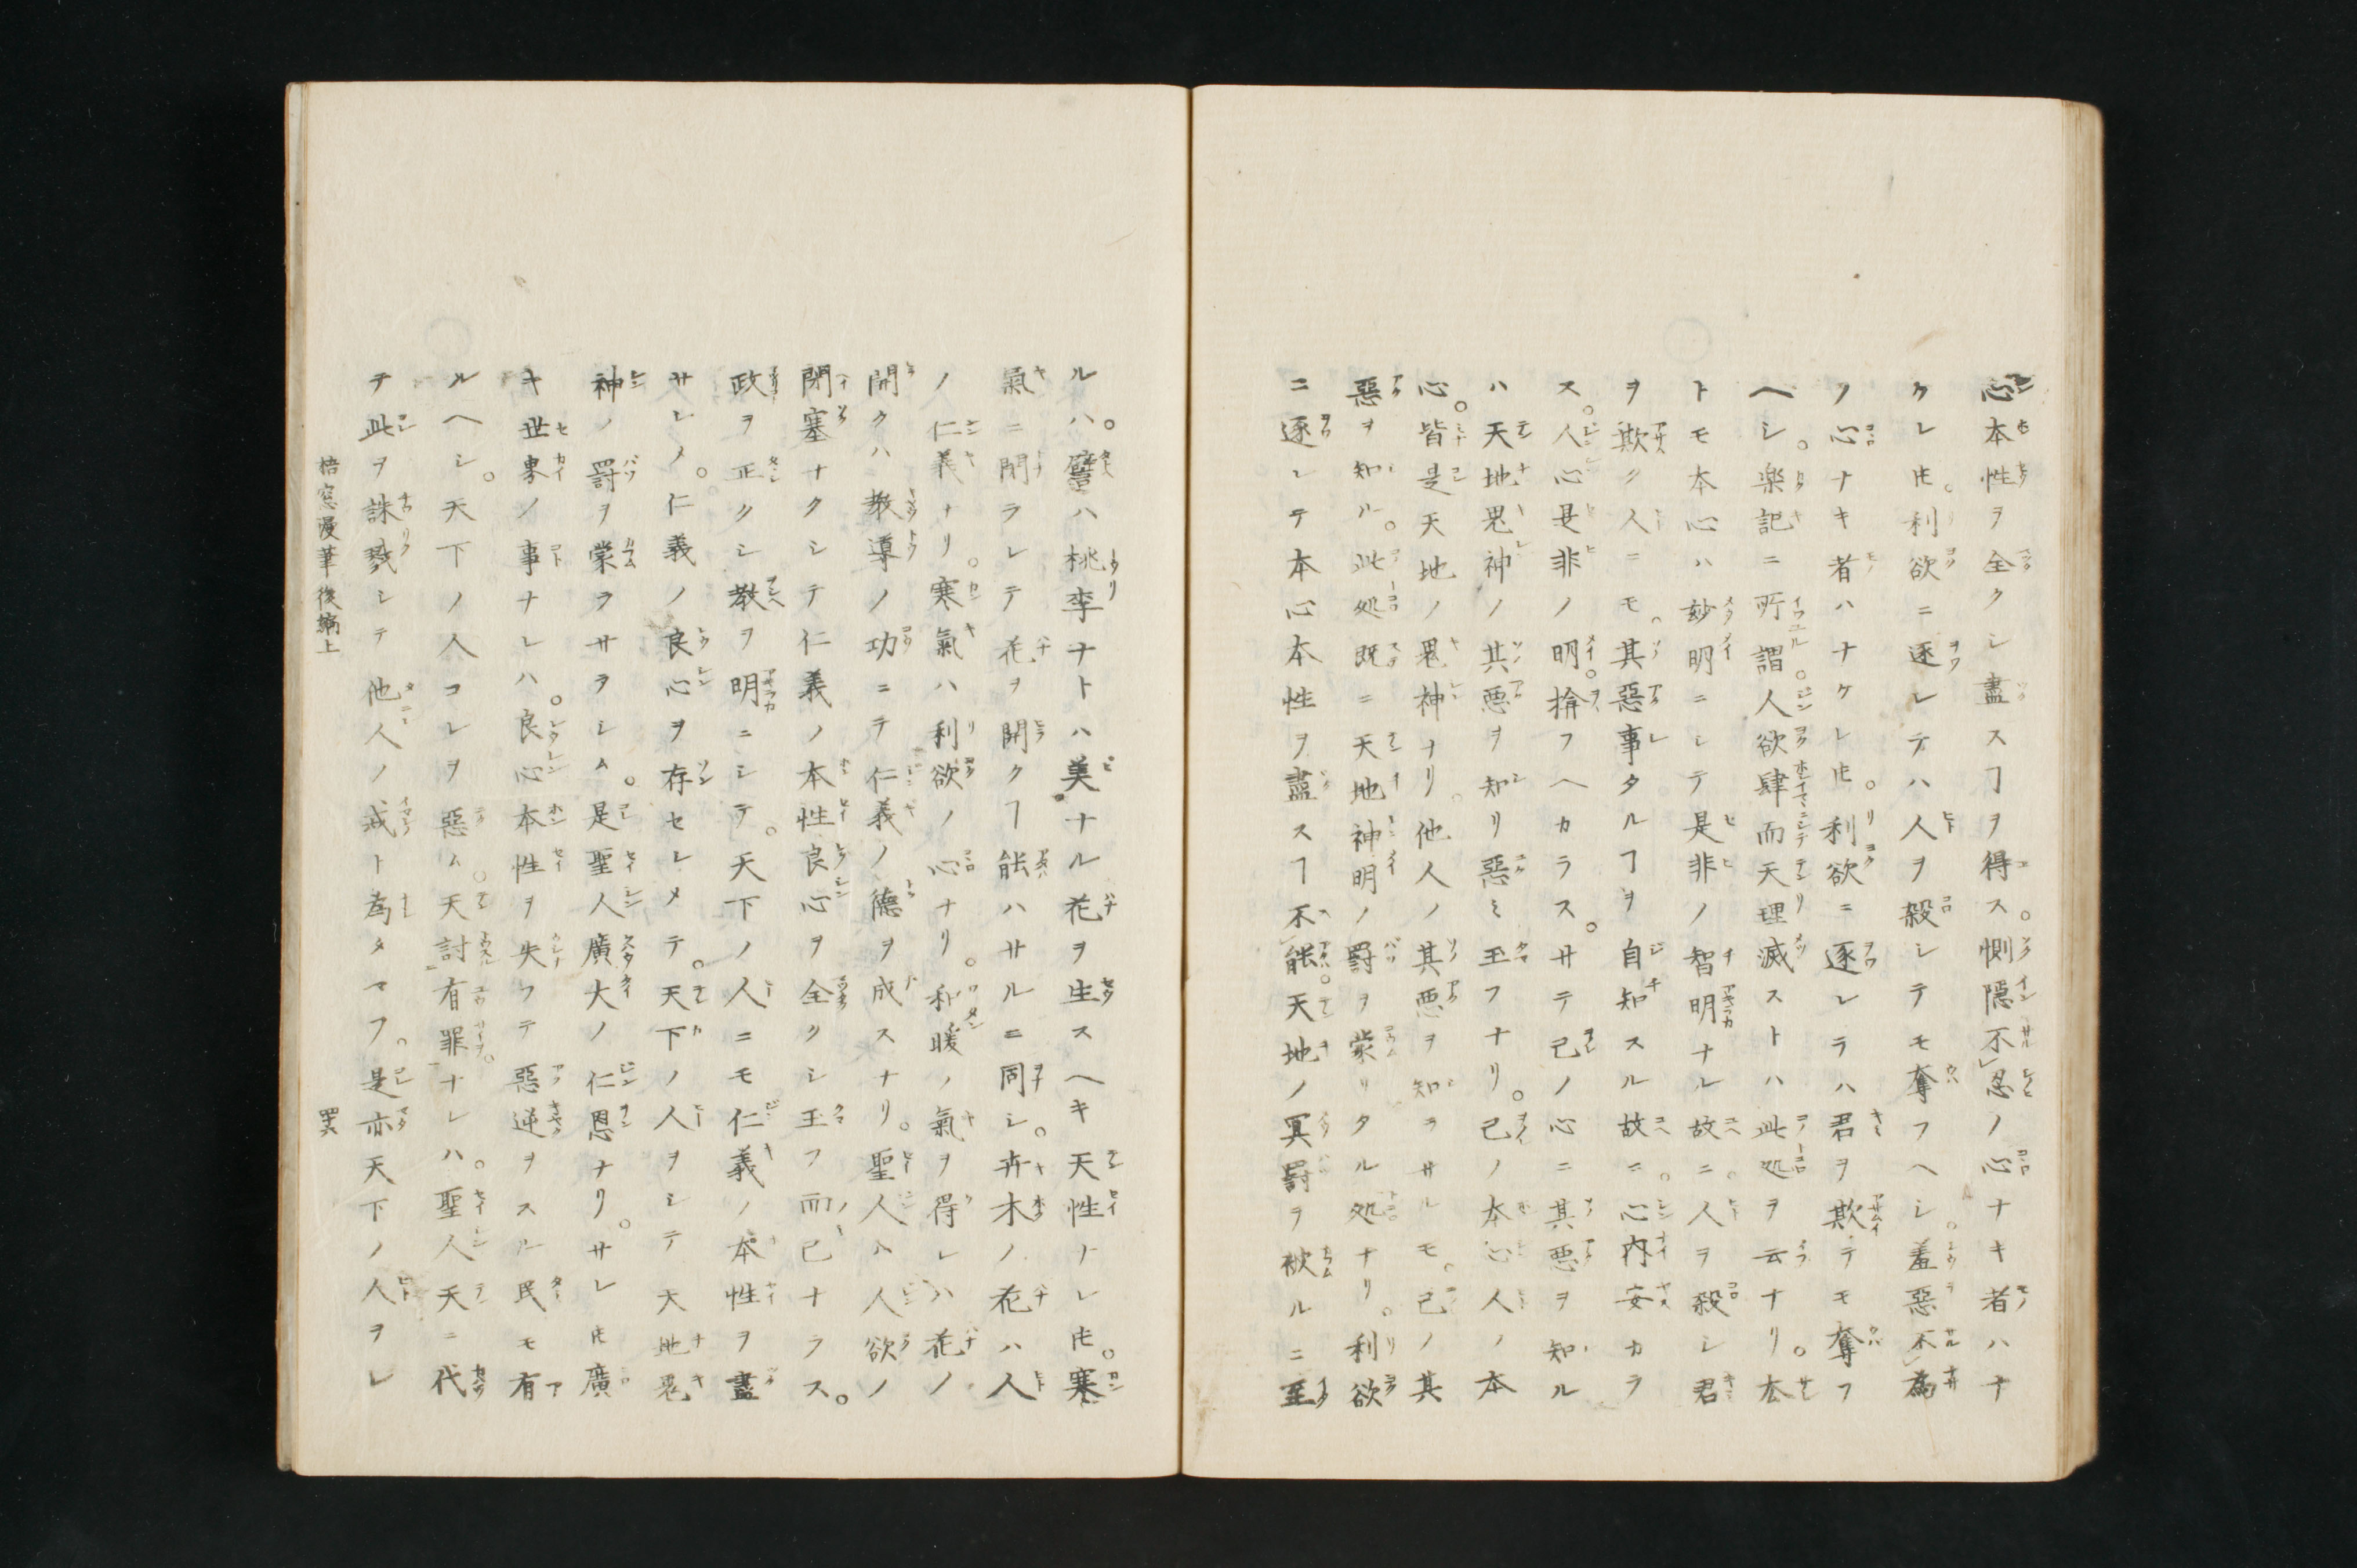 心本性ヲ全クシ盡スヿヲ得ス。惻隠不忍ノ心ナキ者ハナ
クレ𪜈。利欲ニ逐レテハ人ヲ殺シテモ奪フヘシ。羞惡不為
ノ心ナキ者ハナケレ𪜈。利欲ニ逐レテハ君ヲ欺テモ奪フ
ヘシ。楽記ニ所謂。人欲肆而天理滅ストハ此処ヲ云ナリ。去レ
トモ本心ハ妙明ニシテ是非ノ智明ナル故ニ。人ヲ殺シ君
ヲ欺ク人ニモ。其惡事タルヿヲ自知スル故ニ。心内安カラ
ス。人心是非ノ明。揜フヘカラス。サテ己ノ心ニ其悪ヲ知ル
ハ天地鬼神ノ其悪ヲ知リ惡ミ玉フナリ。己ノ本心人ノ本
心。皆是天地ノ鬼神ナリ。他人ノ其悪ヲ知ラサルモ。己ノ其
惡ヲ知ル。此処既ニ天地神明ノ罸ヲ蒙リタル処ナリ。利欲
ニ逐レテ本心本性ヲ盡スヿ不能。天地ノ冥罸ヲ被ルニ至
ルハ。譬ハ桃李ナトハ美ナル花ヲ生スヘキ天性ナレ𪜈。寒
氣ニ閉ラレテ花ヲ開クヿ能ハサルニ同シ。卉木ノ花ハ人
ノ仁義ナリ。寒氣ハ利欲ノ心ナリ。和暖ノ氣ヲ得レハ花ノ
開クハ教導ノ功ニテ仁義ノ德ヲ成スナリ。聖人ハ人欲ノ
閉塞ナクシテ仁義ノ本性良心ヲ全クシ玉フ而已ナラス。
政ヲ正クシ教ヲ明ニシテ。天下ノ人ニモ仁義ノ本性ヲ盡
サシメ。仁義ノ良心ヲ存セシメテ。天下ノ人ヲシテ天地鬼
神ノ罸ヲ蒙ラサラシム。是聖人廣大ノ仁恩ナリ。サレ𪜈廣
キ世界ノ事ナレハ。良心本性ヲ失フテ惡逆ヲスル民モ有
ルヘシ。天下ノ人コレヲ惡ム。天討有罪ナレハ。聖人天ニ代
テ此ヲ誅戮シテ他人ノ戒ト為タマフ。是亦天下ノ人ヲシ
梧窓漫筆後編上